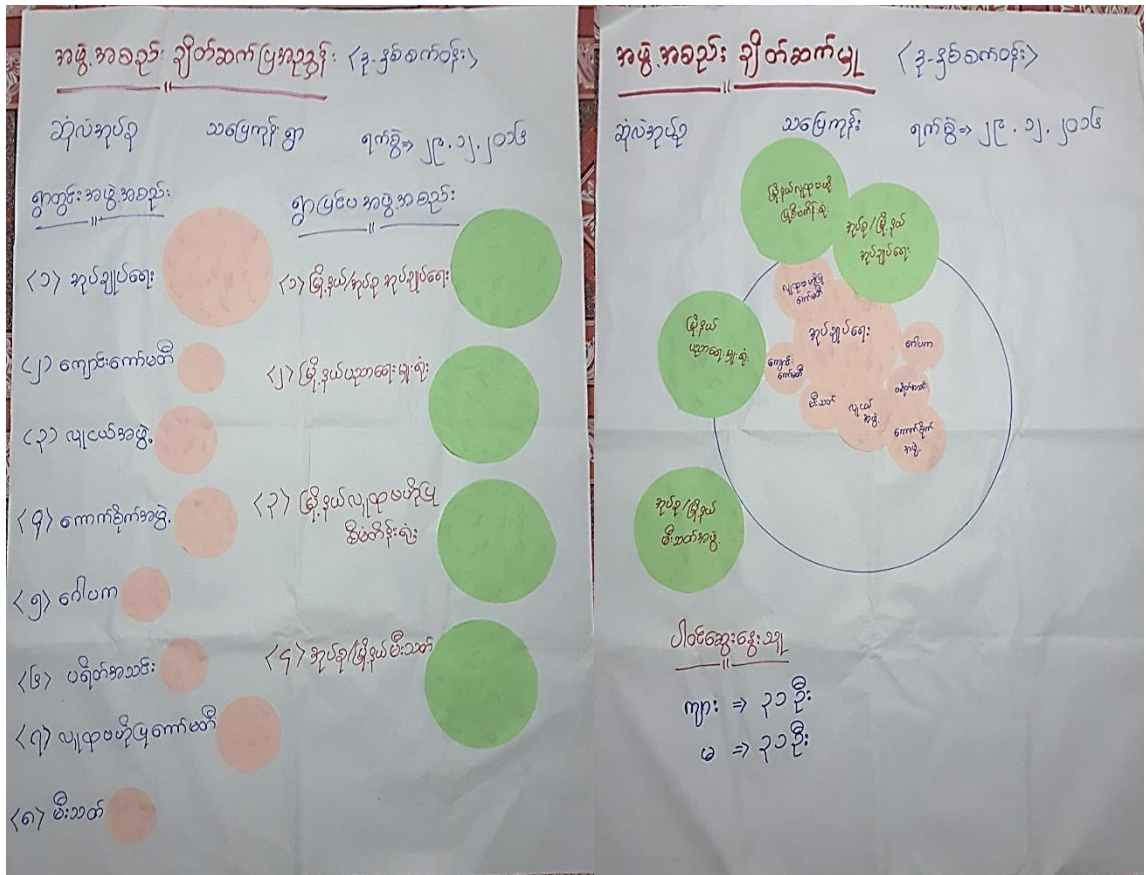 အဖွဲ့အစည်း ချိတ်ဆက်ပြအညွှန်း (ဒု-နှစ်စက်ဝန်း)
ဆုံလဲအုပ်စု သပြေကုန်းရွာ ရက်စွဲ⇒ ၂၉.၁၂.၂၀၁၆
ရွာတွင်းအဖွဲ့အစည်း
ရွာပြင်ပအဖွဲ့အစည်း
(၁) အုပ်ချုပ်ရေး
(၂) ကျောင်းကော်မတီ
(၃) လူငယ်အဖွဲ့
(၄) ကောက်စိုက်အဖွဲ့
(၅) ဂေါပက
(၆) ပရိတ်အသင်း
(၇) လူထုဗဟိုပြုကော်မတီ
(၈) မီးသတ်
(၁) မြို့နယ်/အုပ်စု အုပ်ချုပ်ရေး
(၂) မြို့နယ်ပညာရေးမှူးရုံး
(၃) မြို့နယ်လူထုဗဟိုပြု
စီမံကိန်းရုံး
(၄) အုပ်စု/မြို့နယ်မီးသတ်
အဖွဲ့အစည်း ချိတ်ဆက်မှု (ဒု-နှစ်စက်ဝန်း)
ဆုံလဲအုပ်စု သပြေကုန်း ရက်စွဲ⇒ ၂၉.၁၂.၂၀၁၆
မြို့နယ်လူထုဗဟို
ပြုစီမံကိန်းရုံး
အုပ်စု/မြို့နယ်
အုပ်ချုပ်ရေး
လူထုဗဟိုပြု
ကော်မတီ
အုပ်ချုပ်ရေး
မြို့နယ်
ပညာရေးမှူးရုံး
ဂေါပက
ကျောင်း
ကော်မတီ
ပရိတ်အသင်း
မီးသတ်
လူငယ်
အဖွဲ့
ကောက်စိုက်
အဖွဲ့
အုပ်စု/မြို့နယ်
မီးသတ်အဖွဲ့
ပါဝင်ဆွေးနွေးသူ
ကျား ⇒ ၃၁ဦး
မ ⇒ ၃၁ဦး